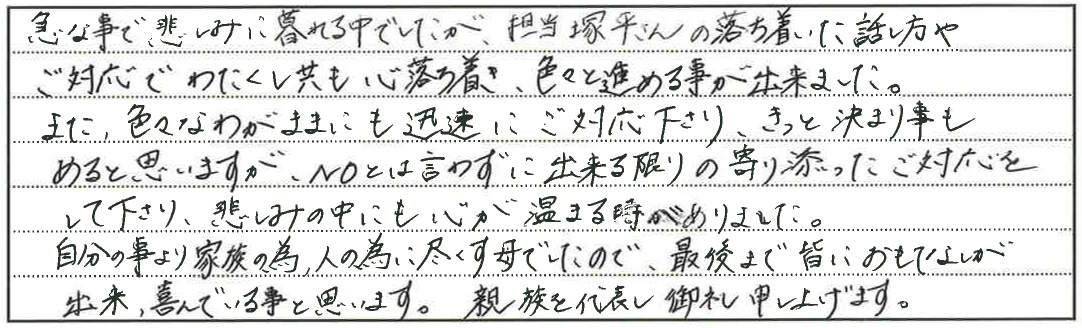 急な事で悲しみに暮れる中でしたが、担当塚平さんの落ち着いた話し方や
ご対応でわたくし共も心落ち着き、色々と進める事が出来ました。
また、色々なわがままにも迅速にご対応下さり、きっと決まり事も
あると思いますが、NOとは言わずに出来る限りの寄り添ったご対応を
して下さり、悲しみの中にも心が温まる時がありました。
自分の事より家族の為、人の為に尽くす母でしたので、最後まで皆におもてなしが
出来、喜んでいる事と思います。 親族を代表し御礼申し上げます。